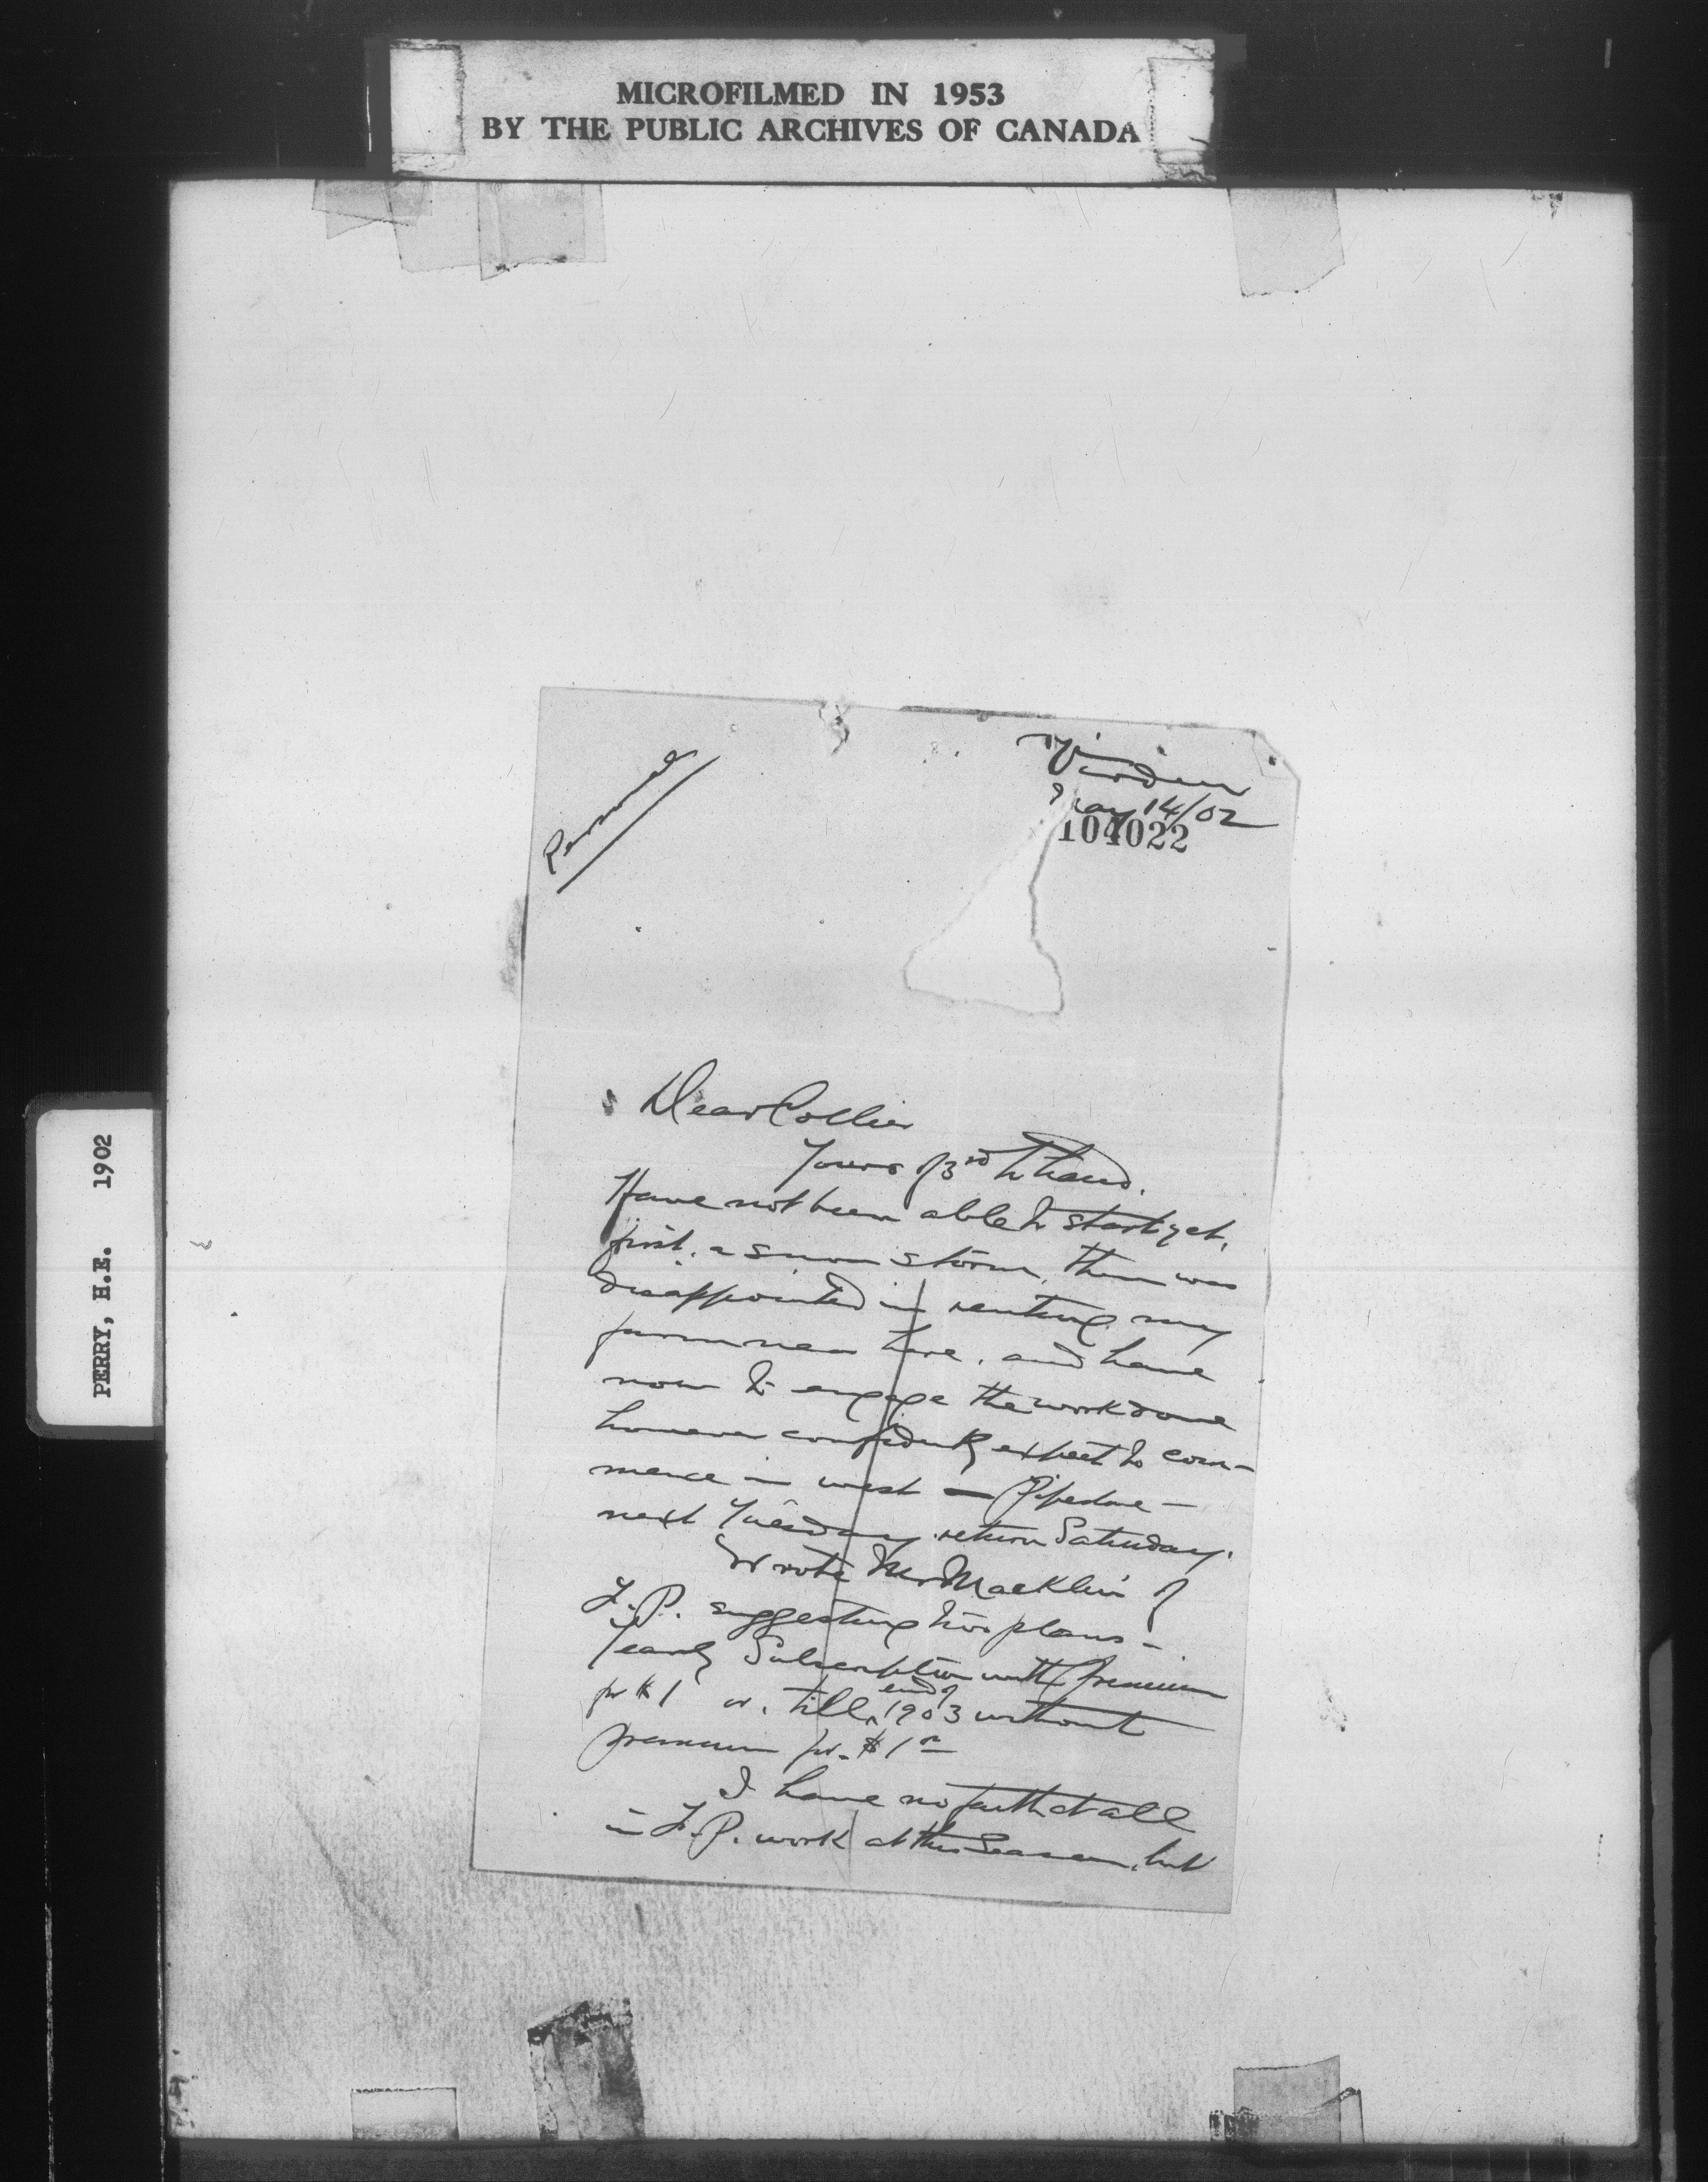 MICROFILMED IN 1953
BY THE PUBLIC ARCHIVES OF CANADA
PERRY, H.E. 1902
Personal
Virden
May 14/02
104022
Dear Collier
Yours of 3rd to hand.
Have not been able to start yet,
first, a snow storm, then was
disappointed in renting my
farm near here, and have
now to engage the work done
however confidently expect to com-
mence in west — Pipestone —
next Tuesday return Saturday.
Wrote Mr Macklin of
F.P. suggesting two plans —
Yearly Subscription with premium
for $1 or. till end of 1903 without
premium for $1 00
I have no faith at all
in F.P. work at this Season, but